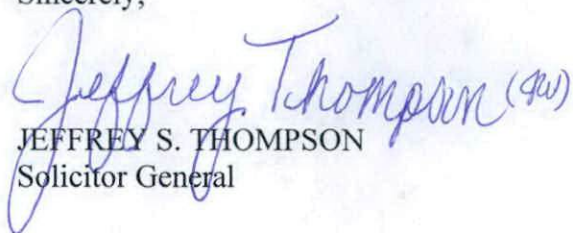 Sincerely,
Jeffrey Thompson
JEFFREY S. THOMPSON
Solicitor General